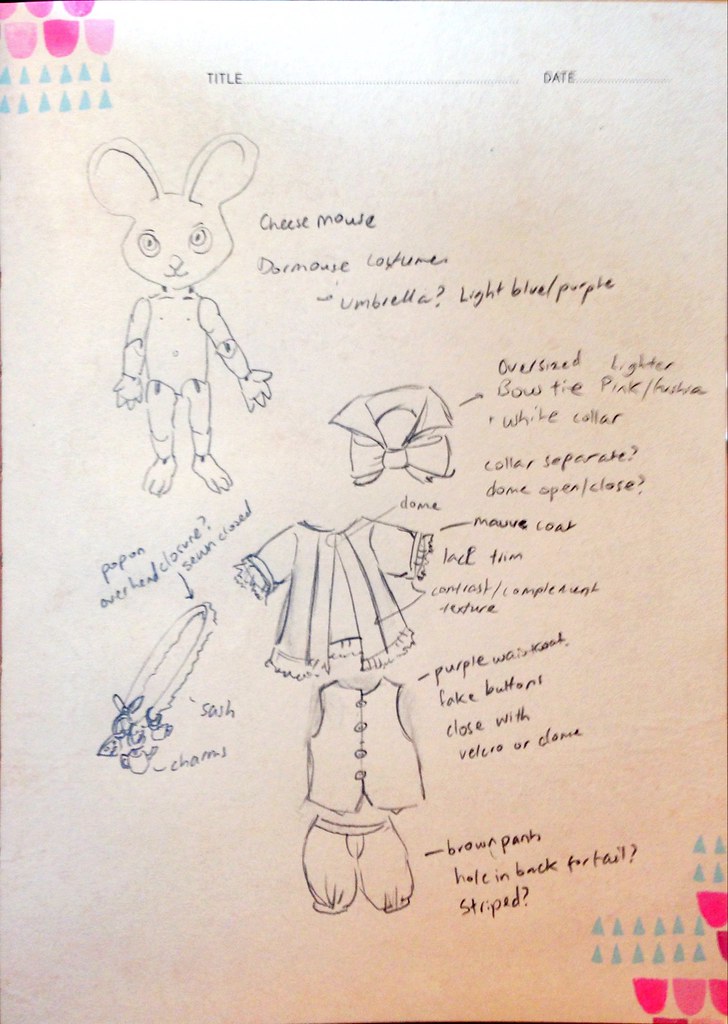 TITLE
DATE
Cheese mouse
Dormouse costume
- umbrella? Light blue/purple
Oversized Lighter
Bow tie Pink/fushia
+ white collar
collar separate?
dome open/close?
dome
mauve coat
lace trim
contrast/complement
texture
pop on
overhead closure?
sewn closed
sash
charms
purple waistcoat
fake buttons
close with
velcro or dome
brown pants
hole in back for tail?
striped?